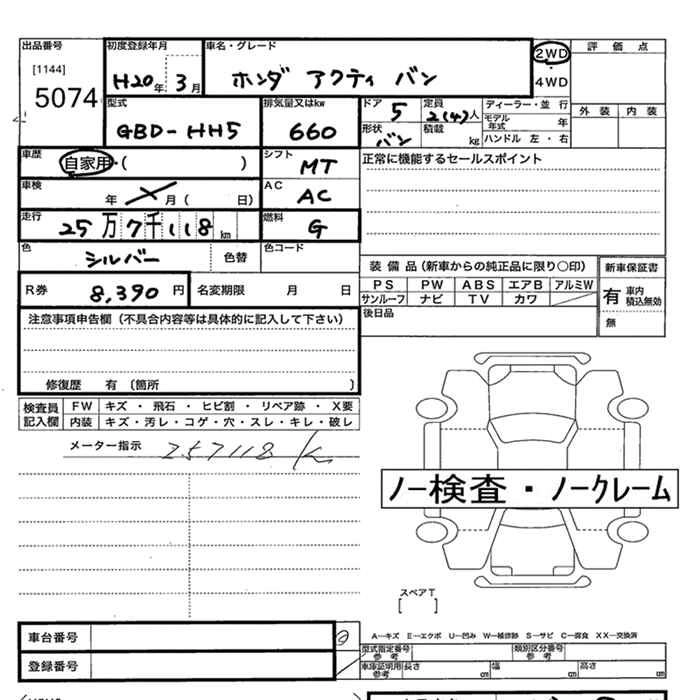 出品番号 初度登録年月 車名・グレード 2WD 評価点
[1144] H20年 3月 ホンダ アクティ バン ・4WD
5074 型式 排気量又はkw ドア 5 定員 2(4)人 ディーラー・並行 外装 内装
GBD-HH5 660 形状 バン 積載 kg モデル年式 年 ハンドル 左・右
車歴 自家用・( ) シフト MT 正常に機能するセールスポイント
車検 年 月 ( 日) AC AC
走行 25万7千118km 燃料 G
色 シルバー 色替 色コード
装備品(新車からの純正品に限り○印) 新車保証書
R券 8,390円 名変期限 月 日 PS PW ABS エアB アルミW 有 車内積込無効
サンルーフ ナビ TV カワ
注意事項申告欄(不具合内容等は具体的に記入して下さい) 後日品 無
修復歴 有 〔箇所 〕
検査員記入欄 FW キズ・飛石・ヒビ割・リペア跡・X要
内装 キズ・汚レ・コゲ・穴・スレ・キレ・破レ
メーター指示 257118 K
ノー検査・ノークレーム
スペアT
[ ]
車台番号 A―キズ E―エクボ U―凹み W―補修跡 S―サビ C―腐食 XX―交換済
型式指定番号 参考 類別区分番号 参考
登録番号 車庫証明用 参考 長さ cm 幅 cm 高さ cm